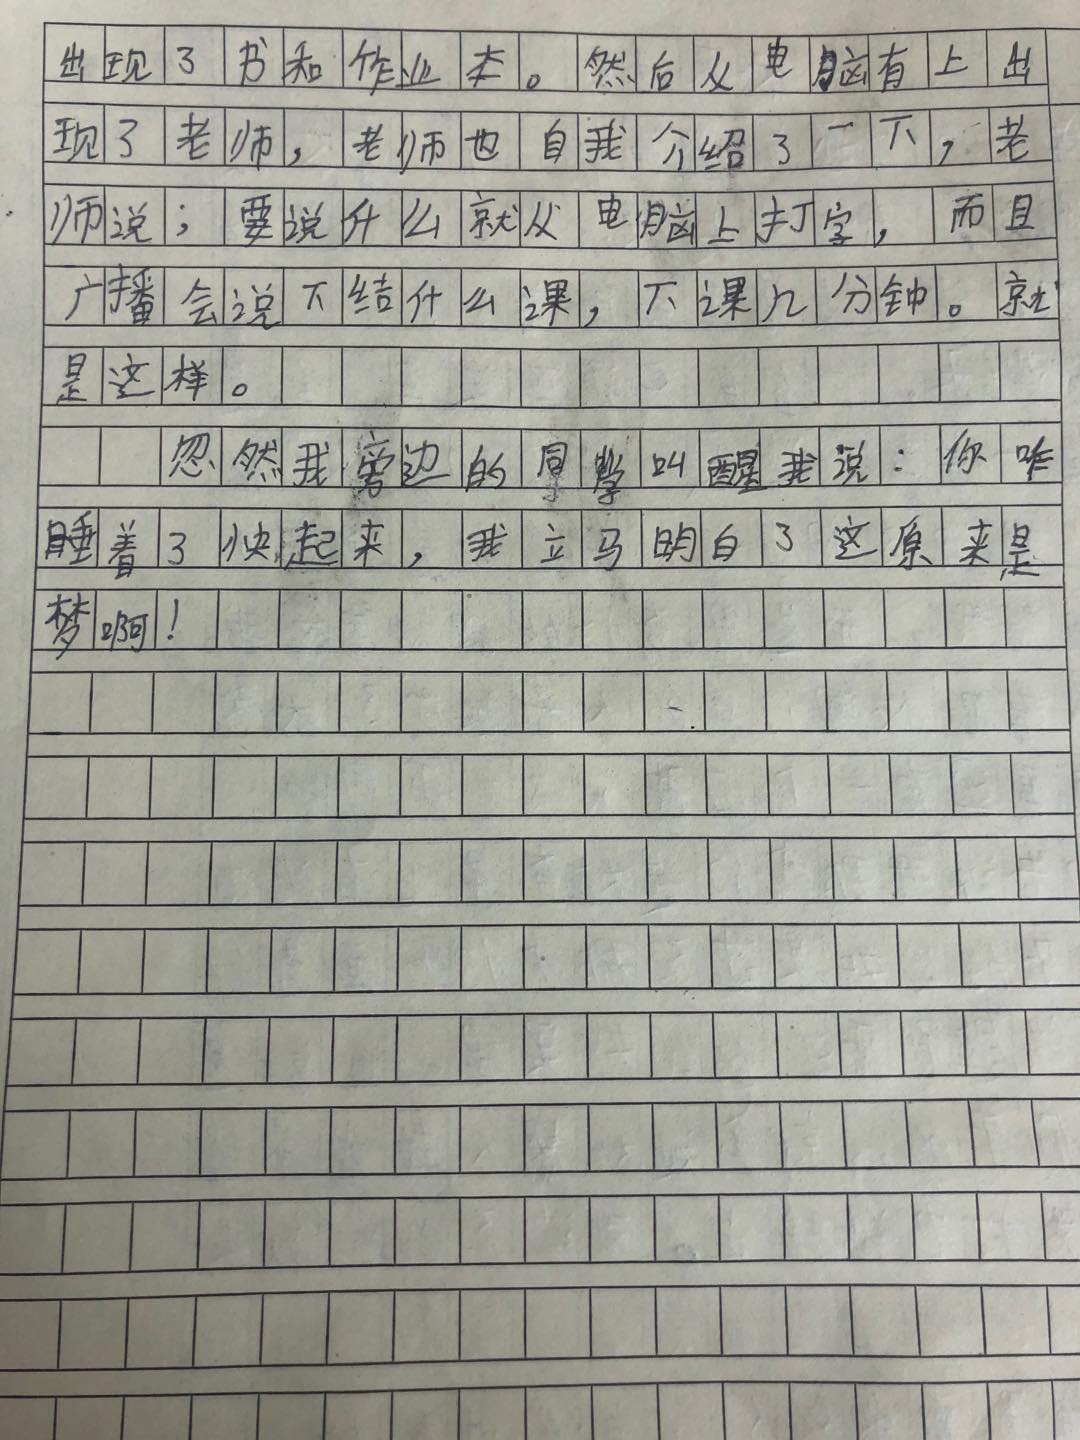 出现了书和作业本。然后从电脑有上出
现了老师，老师也自我介绍了一下，老
师说；要说什么就从电脑上打字，而且
广播会说下结什么课，下课几分钟。就
是这样。
忽然我旁边的同学叫醒我说：你咋
睡着了快起来，我立马明白了这原来是
梦啊！